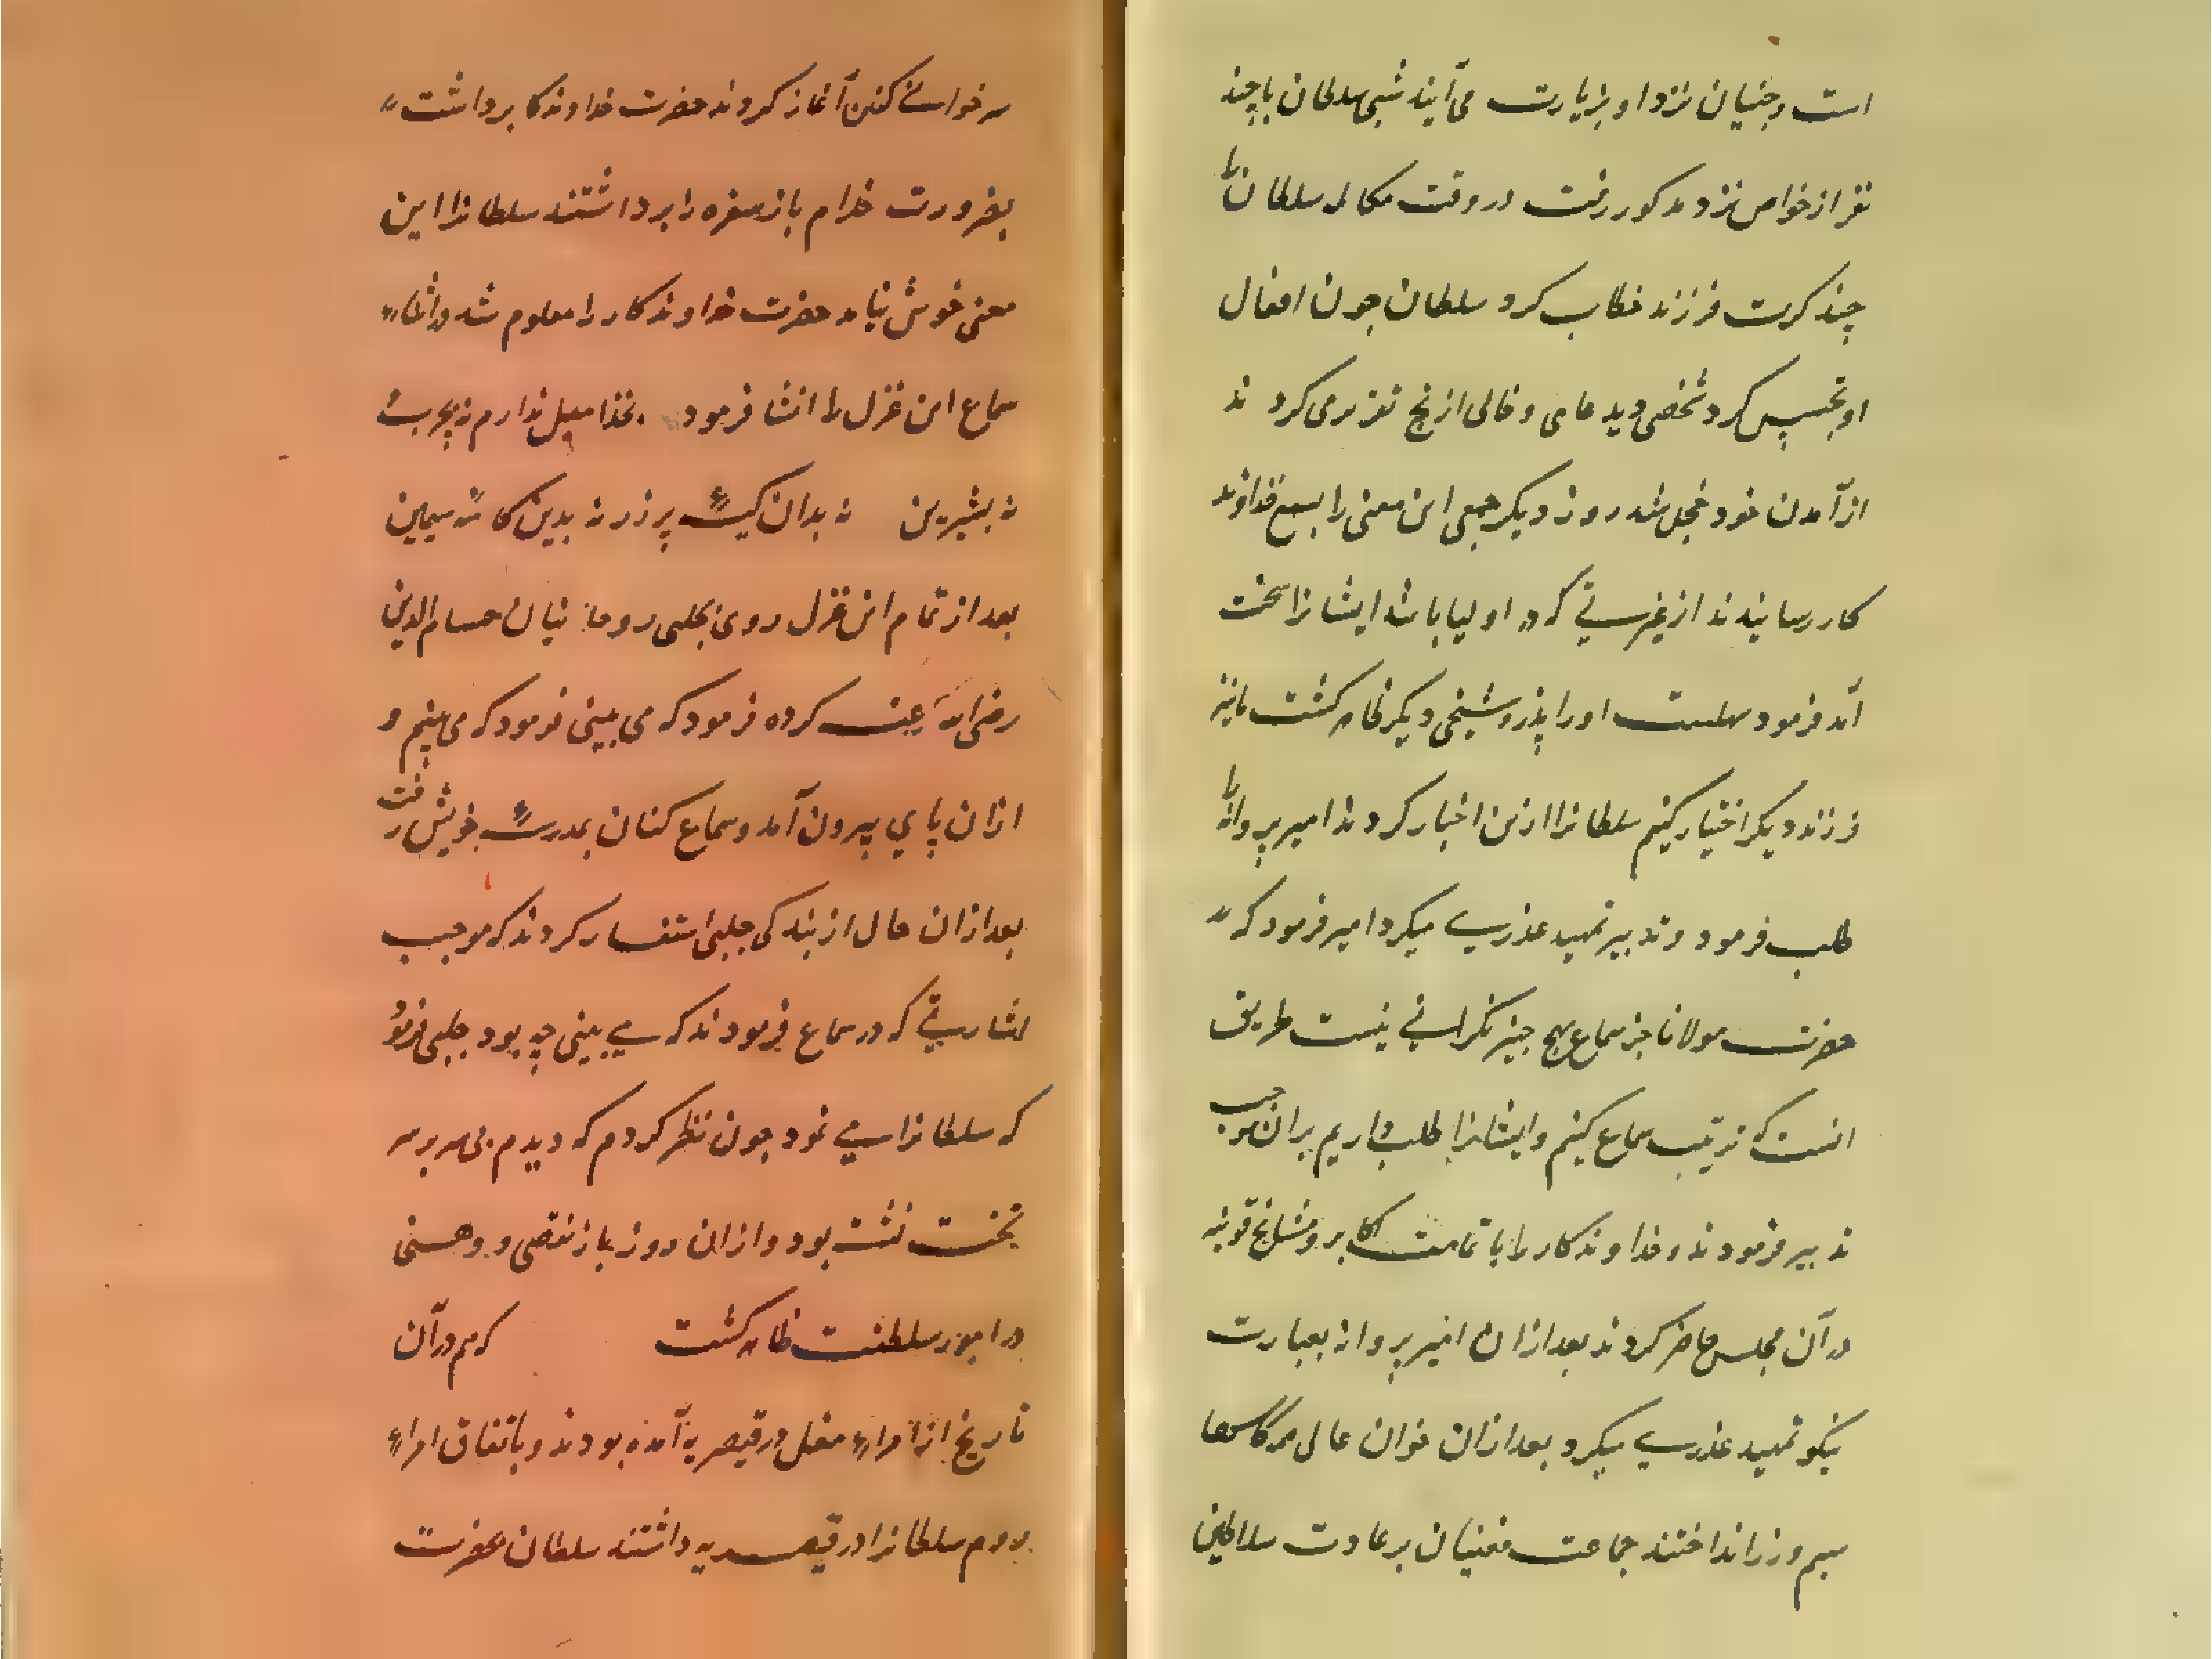 است و جنیان نزد او بزیارت می آیند شبی سلطان با چند
نفر از خواص نزد مذکور رفت در وقت مکالمه سلطان را
چند کرت فرزند خطاب کرد سلطان چون افعال
او تجسس کرد شخصی دید عامی و خالی از نهج تقریر می کرد
از آمدن خود خجل شد روز دیکر جمعی این معنی را بسمع خداوند
کار رسانیدند از غیرتی که در اولیا باشد ایشانرا سخت
آمد فرمود سهلست او را پذر و شیخی دیکر ظاهر کشت ما نیز
فرزند دیکر اختیار کنیم سلطانرا ازین اخبار کردند امیر پروانه را
طلب فرمود و تدبیر تمهید عذری میکرد امیر فرمود که
حضرت مولانا جز سماع بهیچ چیز نکرانی نیست طریق
آنست که ترتیب سماع کنیم و ایشانرا طلب داریم بران موجب
تدبیر فرمودند و خداوندکار را با تمامت اکابر و مشایخ قونیه
در آن مجلس حاضر کردند بعد ازان امیر پروانه بعبارت
نیکو تمهید عذری میکرد بعد ازان خوان عالی
سیم و زر انداختند جماعت مغنیان بر عادت سلاطین
سر خوانی کفتن آغاز کردند حضرت خداوندکار برداشت
بضرورت خدام باز سفره را برداشتند سلطانرا این
معنی خوش نیامد حضرت خداوندکار را معلوم شد در اثناء
سماع این غزل را انشا فرمود بغذا میل ندارم نه بچرب
نه بشیرین نه بدان کیسهٔ پر زر نه بدین کاسه سیمین
بعد از تمام این غزل روی بچلبی روحانیان حسام الدین
رضی الله عنه کرده فرمود که می بینی فرمود که می بینم و
ازان پای بیرون آمد و سماع کنان بمدرسهٔ خویش رفت
بعد ازان حال از بندکی چلبی استفسار کردند که موجب
اشارتی که در سماع فرمودند که می بینی چه بود چلبی فرمود
که سلطانرا می نمود چون نظر کردم که دیدم بی سر بر سر
تخت نشسته بود و ازان روز باز نقصی و وهنی
در امور سلطنت ظاهر کشت که هم در آن
تاریخ از امراء مغل در قیصریه آمده بودند و باتفاق امراء
روم سلطانرا در قیصریه داشتند سلطان بحضرت